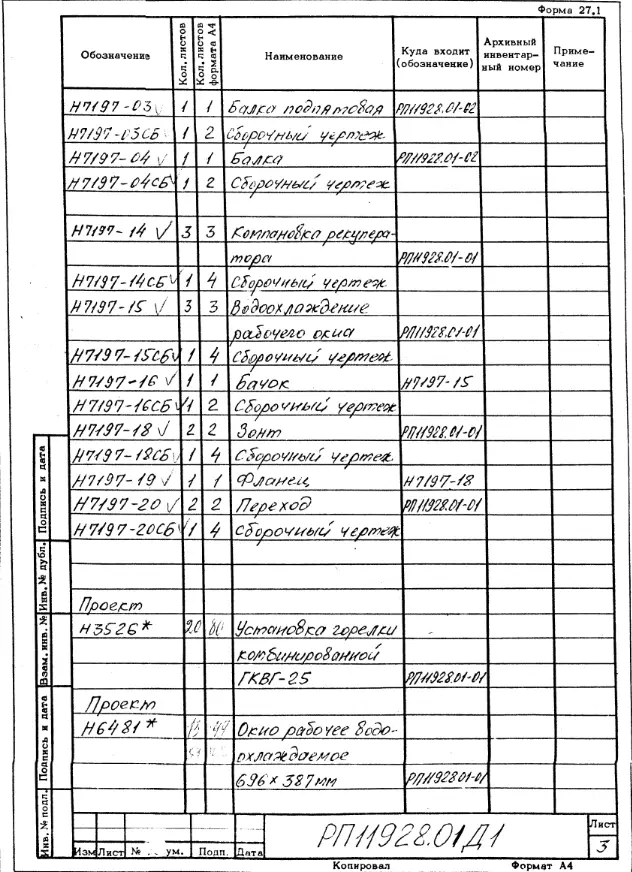 Форма 27,1
Обозначение Кол. листов Кол. листов формата А4 Наименование Куда входит (обозначение) Архивный инвентарный номер Примечание
Н7197-03 √ 1 1 Балка подпятовая РП11928.01-02
Н7197-03СБ 1 2 Сборочный чертеж
Н7197-04 √ 1 1 Балка РП11928.01-02
Н7197-04СБ √ 1 2 Сборочный чертеж
Н7197-14 √ 3 3 Компановка рекупера-
тора РП11928.01-01
Н7197-14СБ √ 1 4 Сборочный чертеж
Н7197-15 √ 3 3 Водоохлаждение
рабочего окна РП11928.01-01
Н7197-15СБ √ 1 4 Сборочный чертеж
Н7197-16 √ 1 1 Бачок Н7197-15
Н7197-16СБ √ 1 2 Сборочный чертеж
Н7197-18 √ 2 2 Зонт РП11928.01-01
Н7197-18СБ √ 1 4 Сборочный чертеж
Н7197-19 √ 1 1 Фланец Н7197-18
Н7197-20 √ 2 2 Переход РП11928.01-01
Н7197-20СБ √ 1 4 Сборочный чертеж
Проект
Н3526* 20 Установка горелки
комбинированной
ГКВГ-25 РП11928.01-01
Проект
Н6481* Окно рабочее водо-
охлаждаемое
696×387мм РП11928.01-01
Инв. № подл. Подпись и дата Взам. инв. № Инв. № дубл. Подпись и дата
Изм Лист № ум. Подп. Дата
РП11928.01Д1
Лист
3
Копировал Формат А4